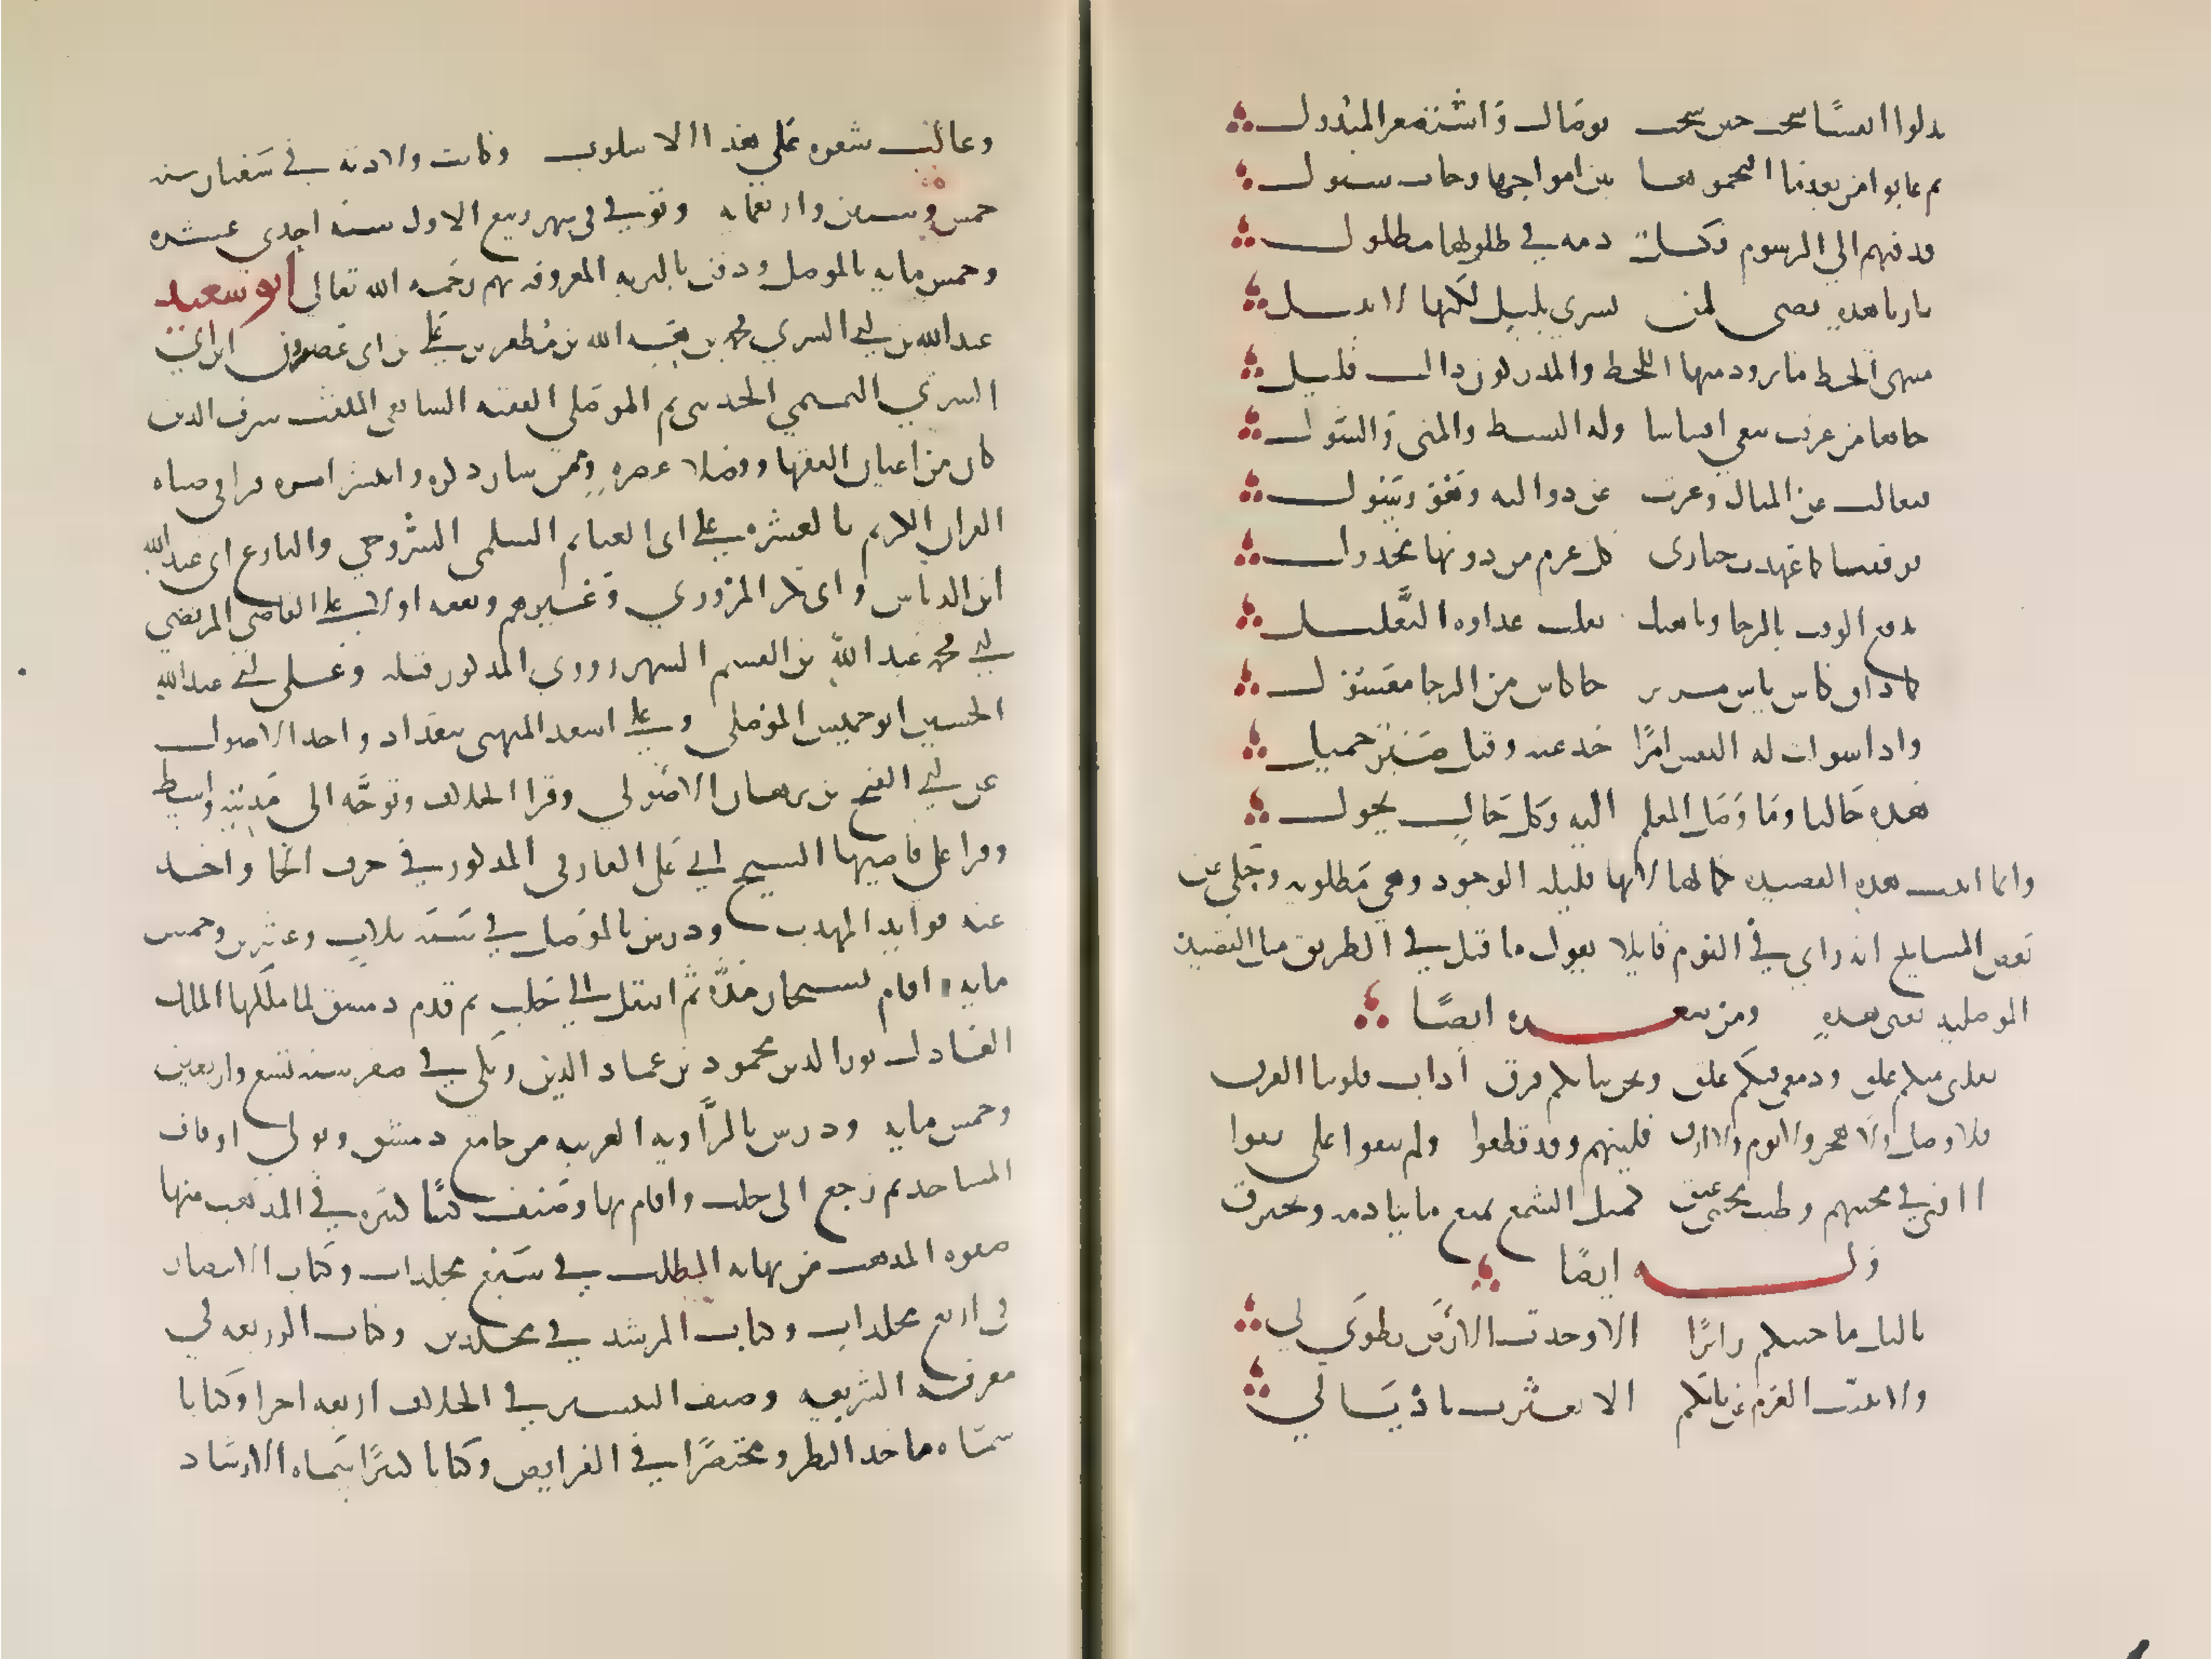 بدلوا انفسا سحت حين شحت بوصال واستصغر المبذول
ثم غابوا من بعد ما اقتحموها بين امواجها وجات سيول
قدفتهم الي الرسوم فكل دمه في طلولها مطلول
نارنا هذه تضي لمن يسري بليل لكنها لا تنيل
منتهى الحظ ما تزود منها اللحظ والمدركون ذاك قليل
جاها من عرفت يبغي اقتباسا وله البسط والمنى والسول
فتعالت عن المنال وعزت عن دنو اليه وهو رسول
فوقفنا كما عهدت حيارى كل عزم من دونها مخذول
ندفع الوقت بالرجا وناهيك بقلب غداوه التعليل
كلما ذاق كاس ياس مرير جا كاس من الرجا معسول
واذا سولت له النفس امرًا حيد عنه وقيل صبر جميل
هذه حالنا وما وصل العلم اليه وكل حال يحول
وانما اثبت هذه القصيده بكمالها لانها قليله الوجود وهي مطلوبه وحكي عن
بعض المشايخ انه راي في النوم قايلا يقول ما قيل في الطريق مثل القصيده
الموصليه يعني هذه ومن شعره ايضًا
بقلبي منكم علق ودمعي فيكم علق ونحن ببابكم فرق اذاب قلوبنا الفرق
فلا وصل ولا هجر ولا نوم ولا ارق فليتهم وقد قطعوا ولم يبقوا على بقوا
اافنى في محبتهم وطيب محبتي عبق كمثل الشمع يمتع ما ينادمه ويحترق
وله ايضًا
يا ليل ما جيتكم زايرًا الا وجدت الارض تطوى لي
ولا ثنيت العزم عن بابكم الا تعثرت باذيالي
وغالب شعره علي هذا الاسلوب وكانت ولادته في شعبان سنه
خمس وستين واربعمايه وتوفي في شهر ربيع الاول سنه احدى عشره
وخمس مايه بالموصل ودفن بالتربه المعروفه بهم رحمه الله تعالى ابو سعيد
عبد الله بن ابي السري محمد بن هبه الله بن مطهر بن علي بن ابي عصرون ابن ابي
السري التميمي الحديثي ثم الموصلي الفقيه الشافعي الملقب شرف الدين
كان من اعيان الفقها وفضلا عصره وممن سار ذكره وانتشر امره قرا في صباه
القران الكريم بالعشره علي ابي الغنايم السلمي السروجي والبارع ابي عبد الله
ابن الدباس وابي بكر المزرفي وغيرهم وتفقه اولا على القاضي المرتضي
ابي محمد عبد الله بن القسم الشهرزوري المذكور قبله وعلى ابي عبد الله
الحسين ابن خميس الموصلي وعلي اسعد الميهني ببغداد واخذ الاصول
عن ابي الفتح بن برهان الاصولي وقرا الخلاف وتوجه الى مدينه واسط
وقرا على قاضيها الشيخ ابي علي الفارقي المذكور في حرف الحا واخذ
عنه فوايد المهذب ودرس بالموصل في سنه ثلاث وعشرين وخمس
مايه واقام بسنجار مدة ثم انتقل الي حلب ثم قدم دمشق لما ملكها الملك
العادل نور الدين محمود بن عماد الدين زنكي في صفر سنه تسع واربعين
وخمس مايه ودرس بالزاويه الغربيه من جامع دمشق وتولى اوقاف
المساجد ثم رجع الى حلب واقام بها وصنف كتبًا كثيره في المذهب منها
صفوه المذهب من نهايه المطلب في سبع مجلدات وكتاب الانتصار
في اربع مجلدات وكتاب المرشد في مجلدين وكتاب الذريعه في
معرفه الشريعه وصنف التيسير في الخلاف اربعه اجزا وكتابا
سماه ماخذ النظر ومختصرًا في الفرايض وكتابا كثيرًا سماه الارشاد